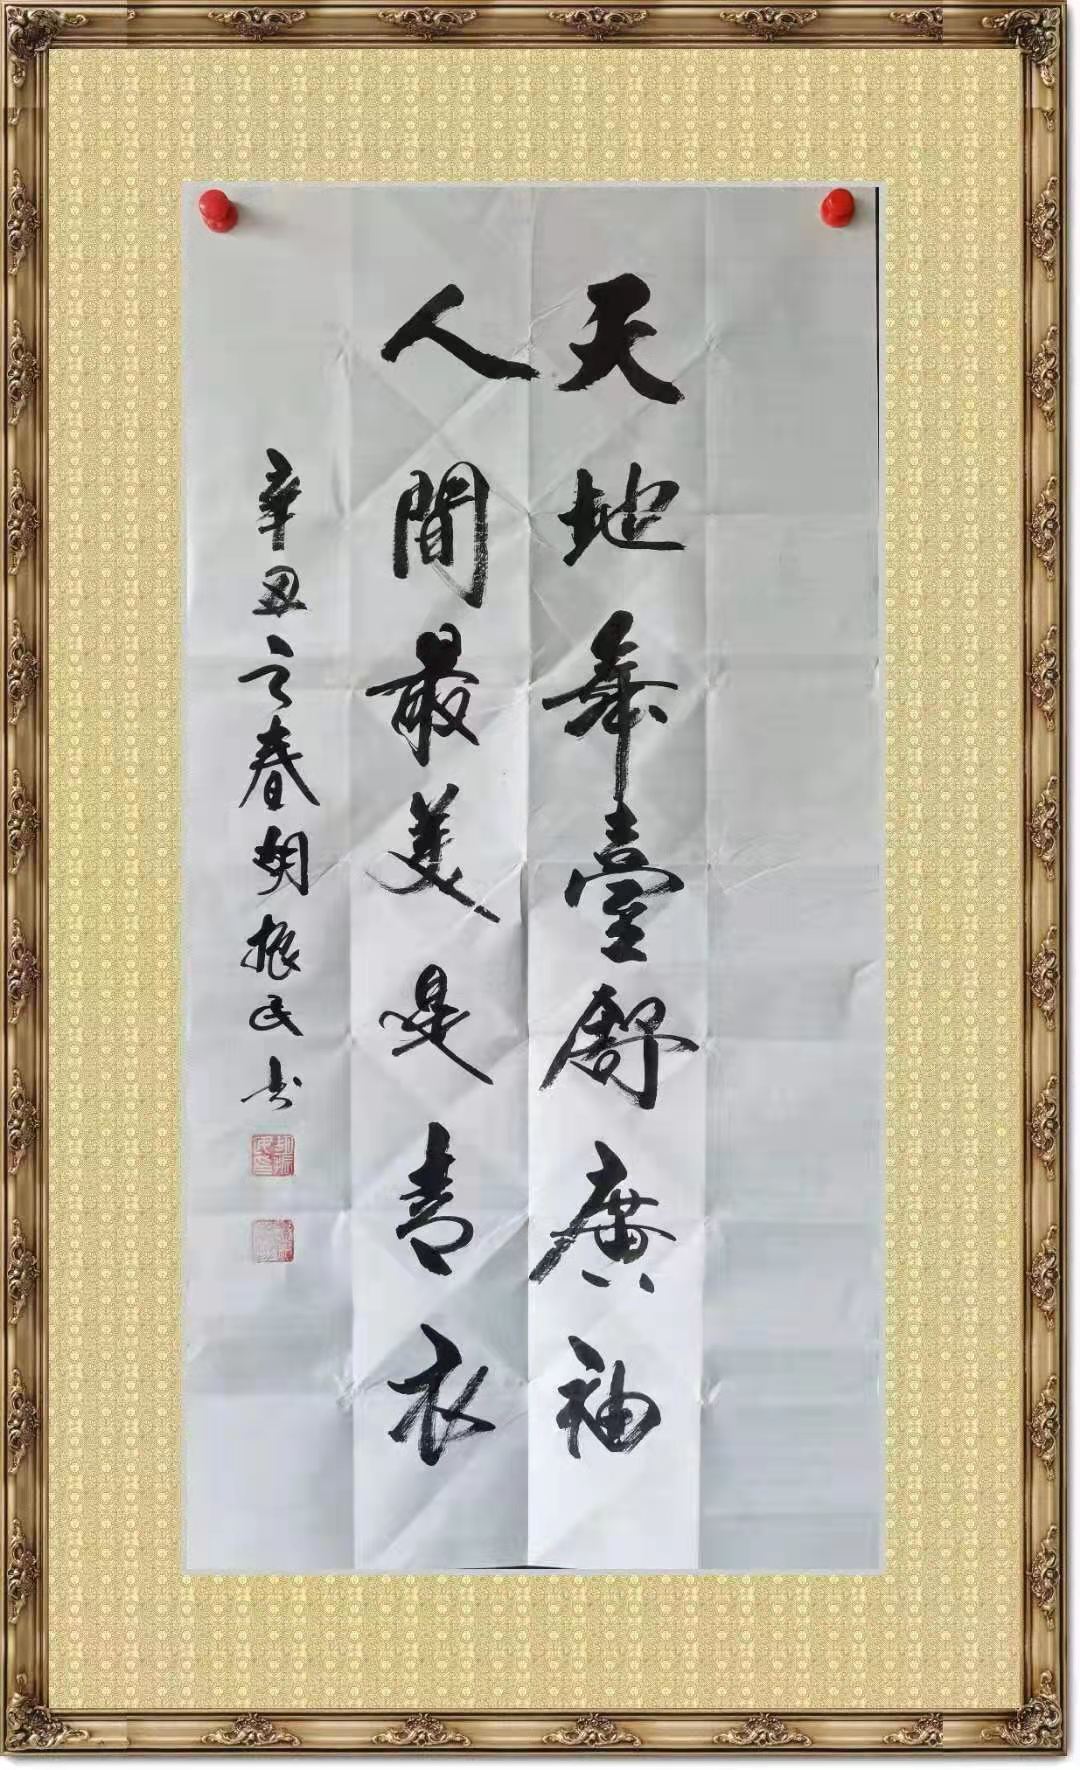 天地舞臺舒廣袖
人間最美是青衣
辛丑之春胡振民书